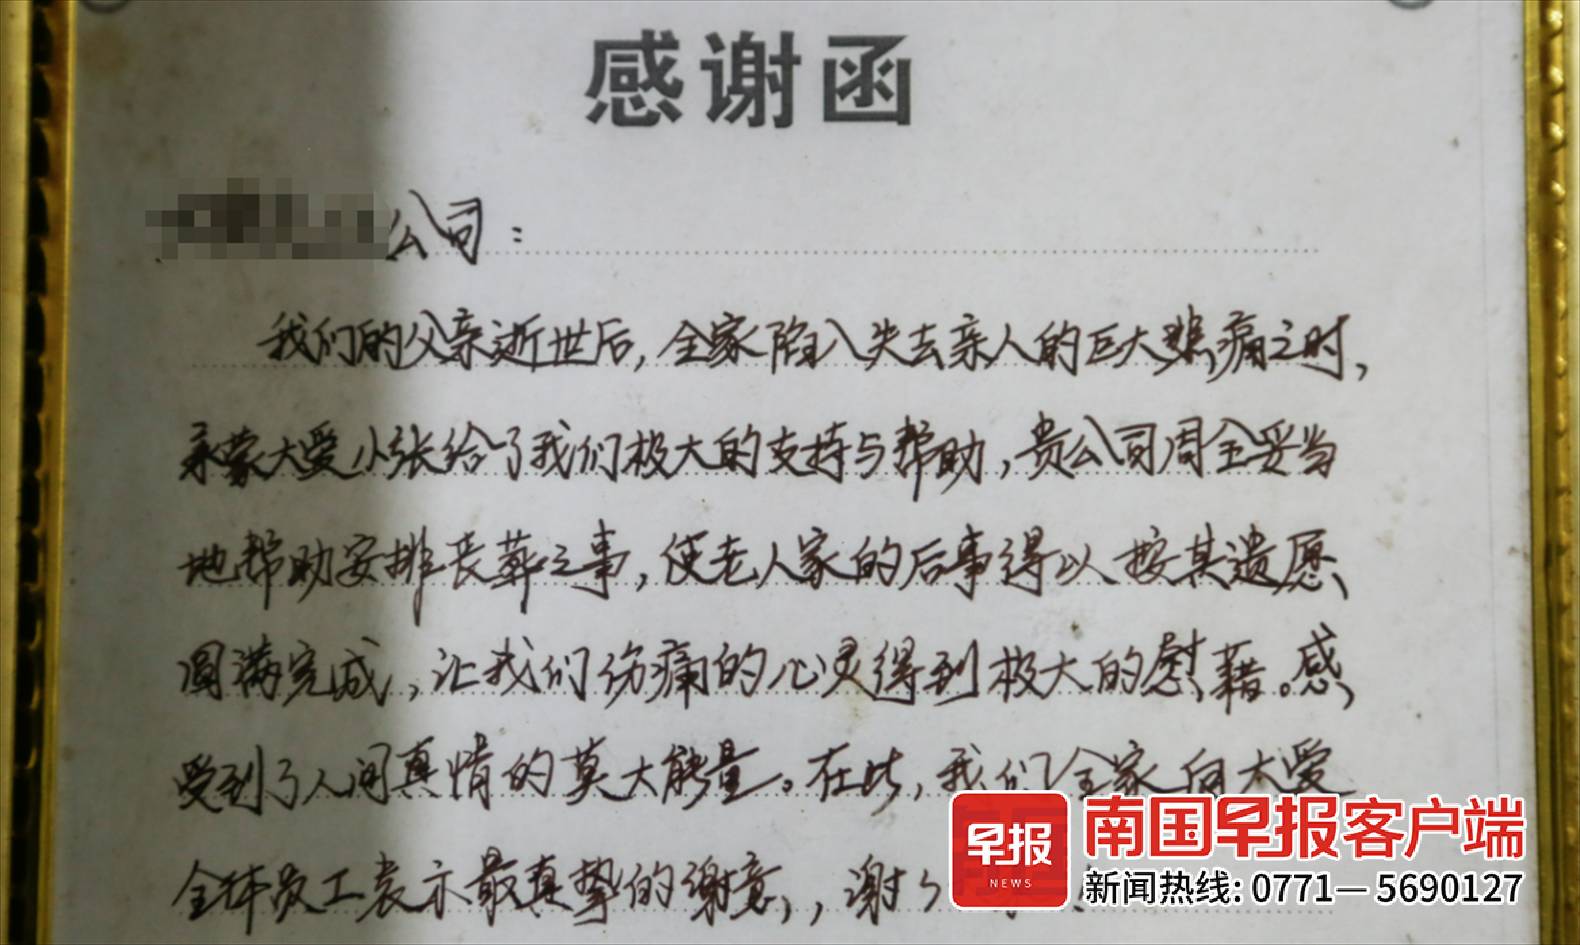 感谢函
公司：
我们的父亲逝世后，全家陷入失去亲人的巨大悲痛之时，
承蒙大爱小张给了我们极大的支持与帮助，贵公司周全妥当
地帮助安排丧葬之事，使老人家的后事得以按其遗愿
圆满完成，让我们伤痛的心灵得到极大的慰藉。感
受到了人间真情的莫大能量。在此，我们全家向大爱
全体员工表示最真挚的谢意，，谢
早报
NEWS
南国早报客户端
新闻热线：0771—5690127